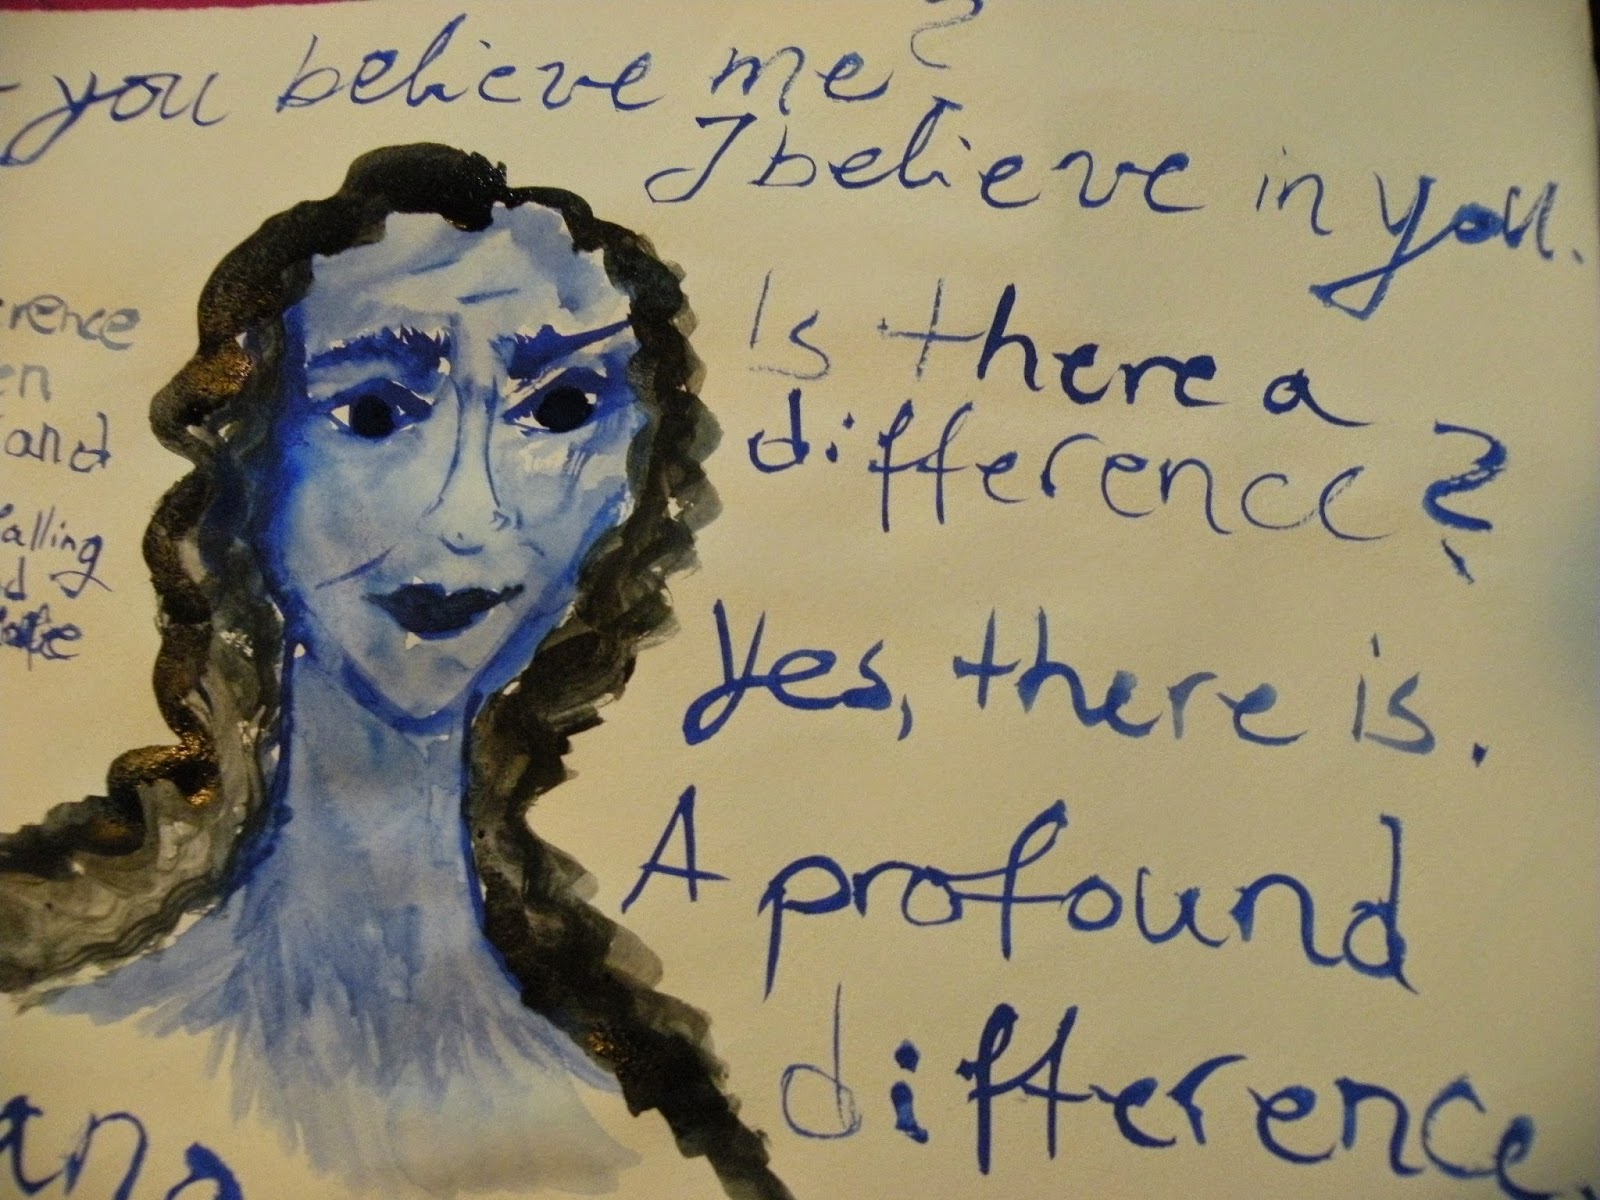 you believe me?
I believe in you.
Is there a
difference?
Yes, there is.
A profound
difference.
erence
en
and
alling
and